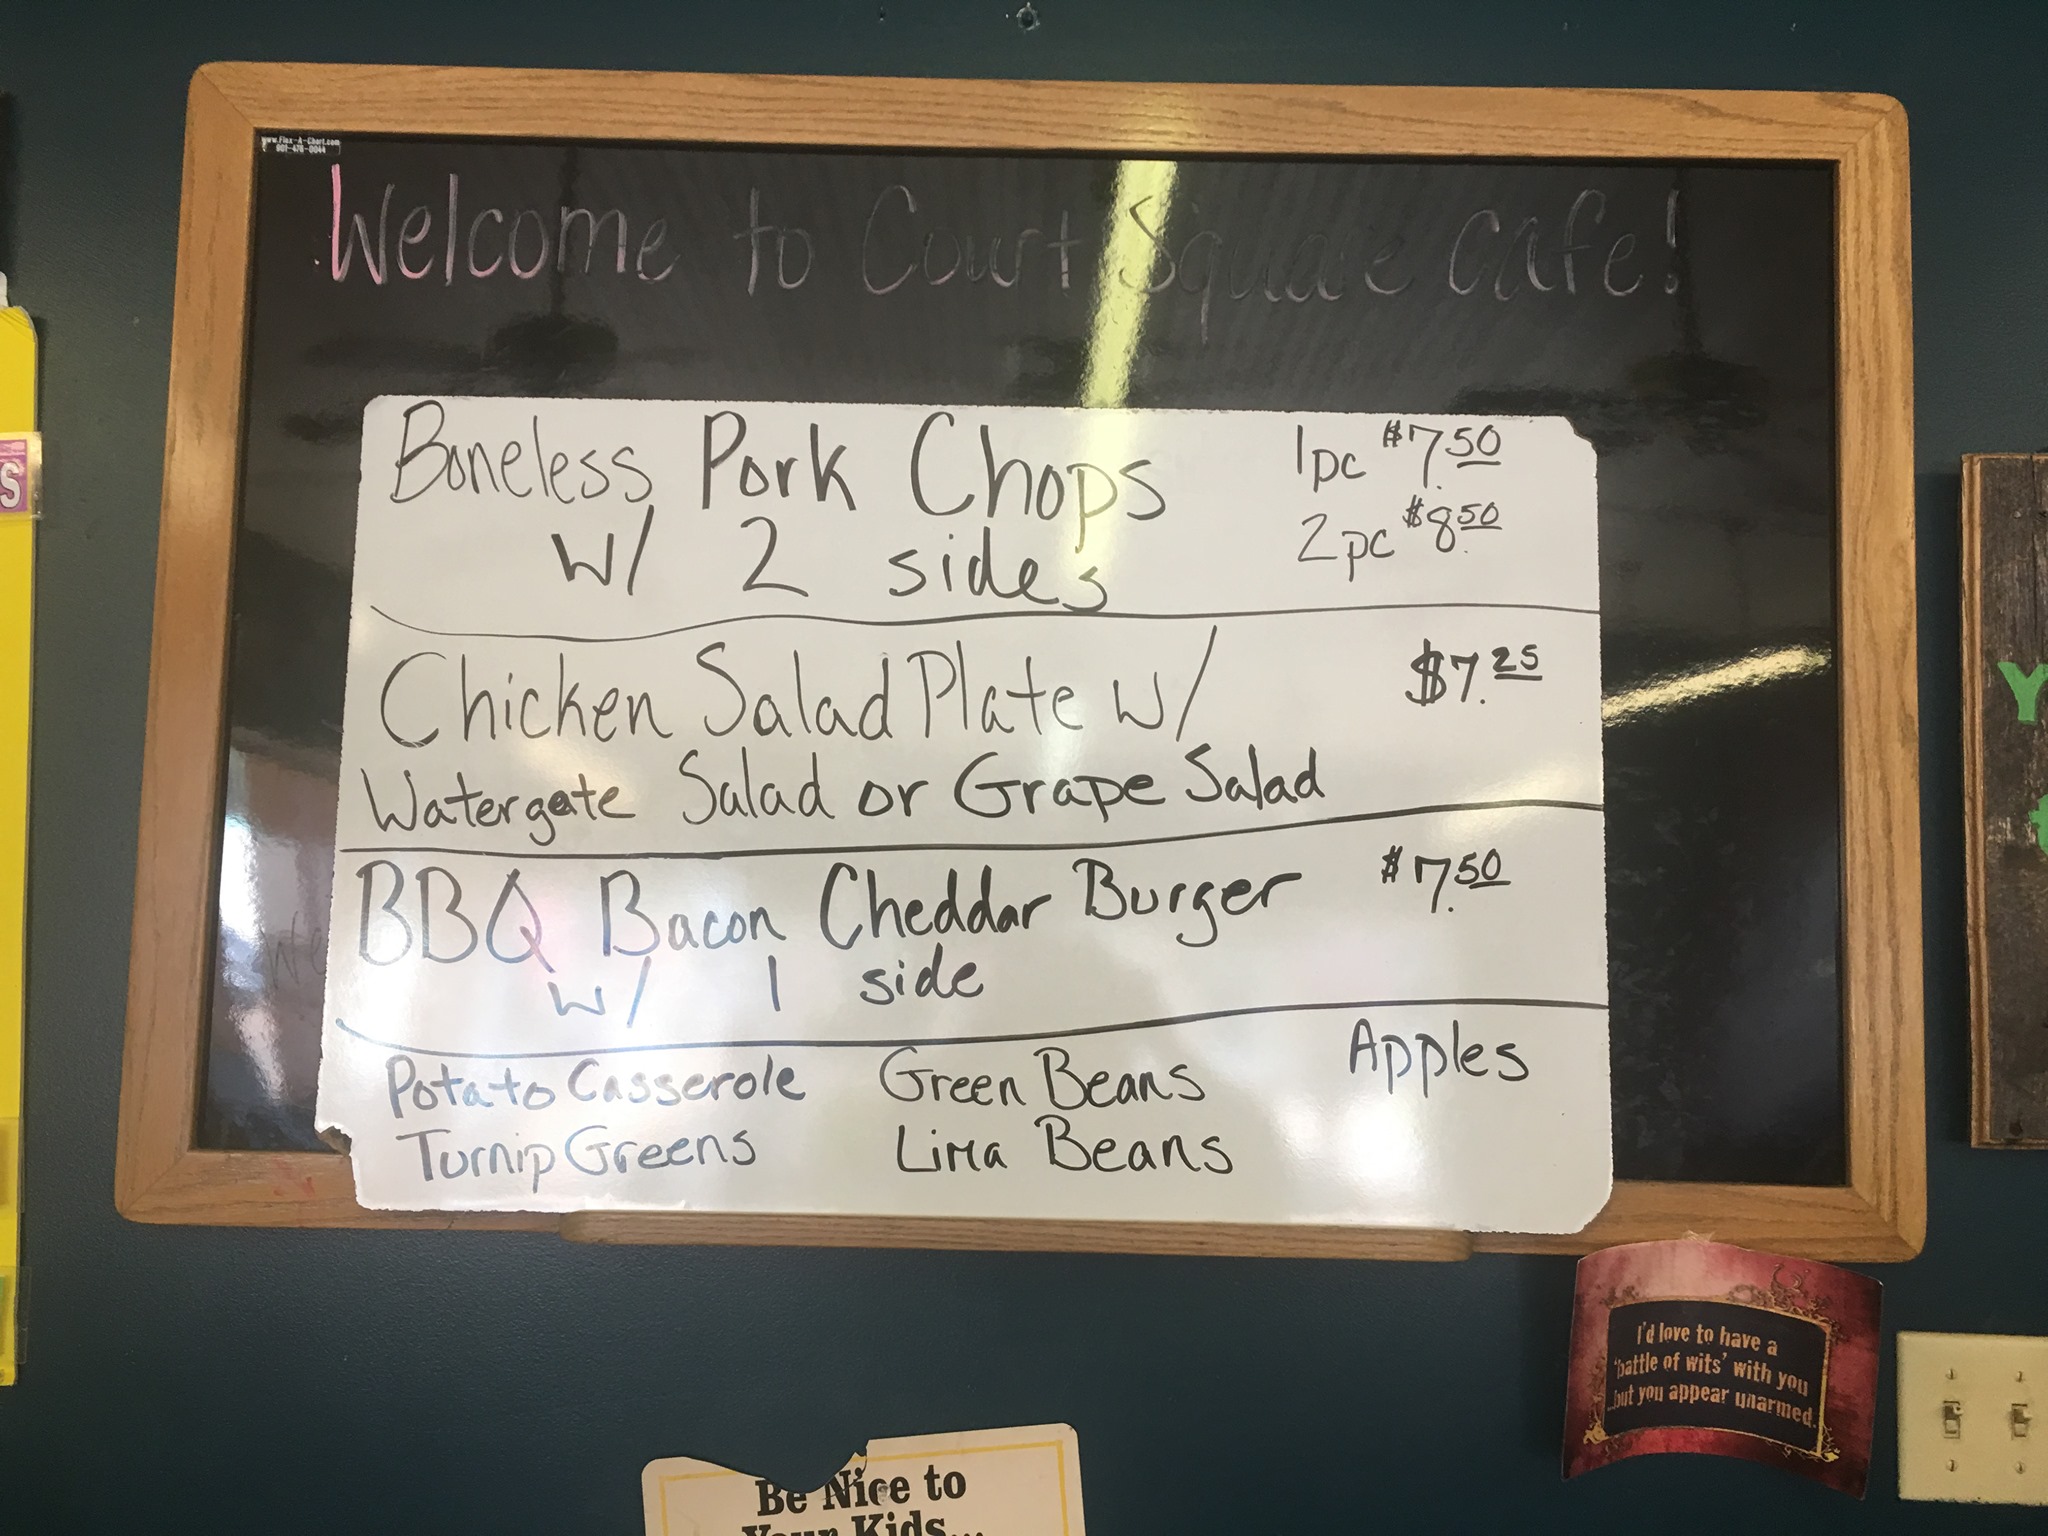 www.Flex-A-Chart.com
901-476-0044
Welcome to Court Square Cafe!
Boneless Pork Chops 1pc $7.50
w/ 2 sides 2pc $8.50
Chicken Salad Plate w/ $7.25
Watergate Salad or Grape Salad
BBQ Bacon Cheddar Burger $7.50
w/ 1 side
Potato Casserole Green Beans Apples
Turnip Greens Lima Beans
I'd love to have a
'battle of wits' with you
...but you appear unarmed.
Be Nice to
Your Kids...
S
Y